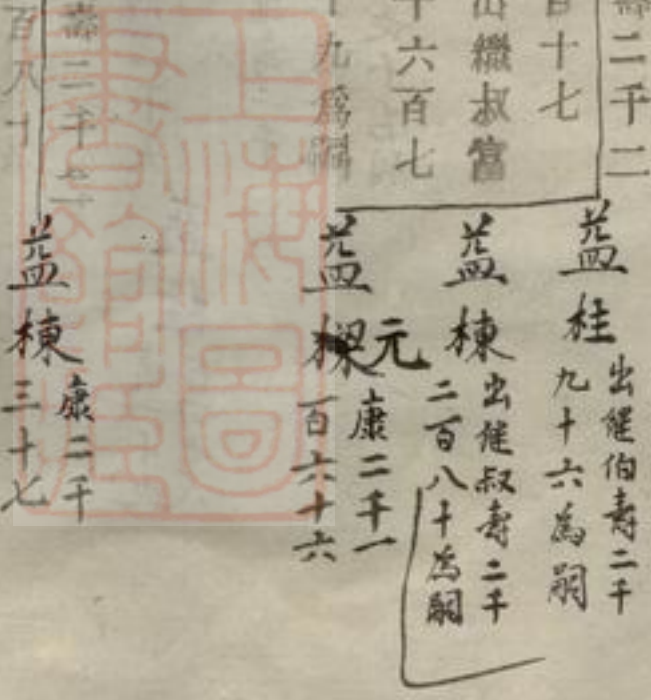 壽二千二
百十七
出繼叔富
千六百七
十九爲嗣
壽二千
百八十
益桂
出繼伯壽二千
九十六為嗣
益棟
出繼叔壽二千
二百八十為嗣
益樑
元
康二千一
百六十六
益棟
康二千
三十七
上海圖
書館藏